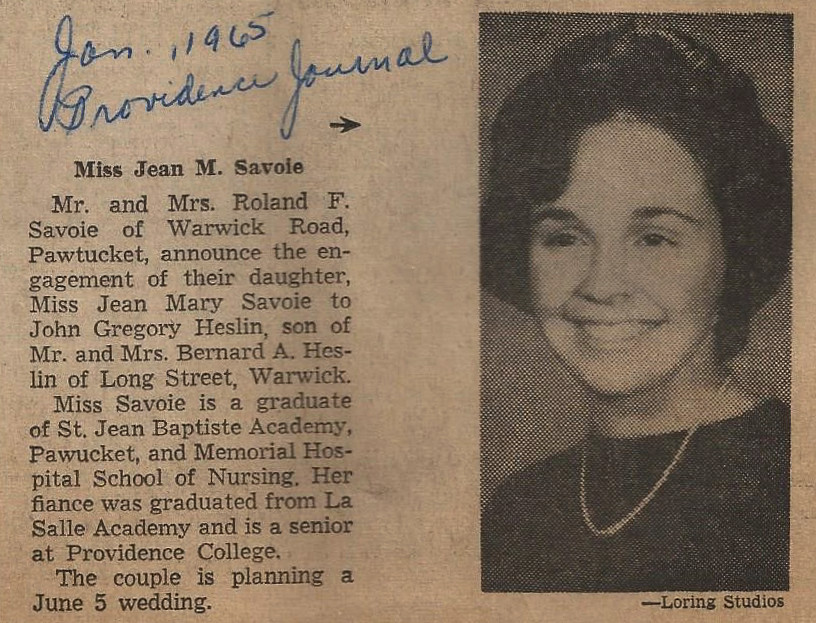 Jan., 1965
Providence Journal
Miss Jean M. Savoie
Mr. and Mrs. Roland F.
Savoie of Warwick Road,
Pawtucket, announce the en-
gagement of their daughter,
Miss Jean Mary Savoie to
John Gregory Heslin, son of
Mr. and Mrs. Bernard A. Hes-
lin of Long Street, Warwick.
Miss Savoie is a graduate
of St. Jean Baptiste Academy,
Pawucket, and Memorial Hos-
pital School of Nursing. Her
fiance was graduated from La
Salle Academy and is a senior
at Providence College.
The couple is planning a
June 5 wedding.
—Loring Studios